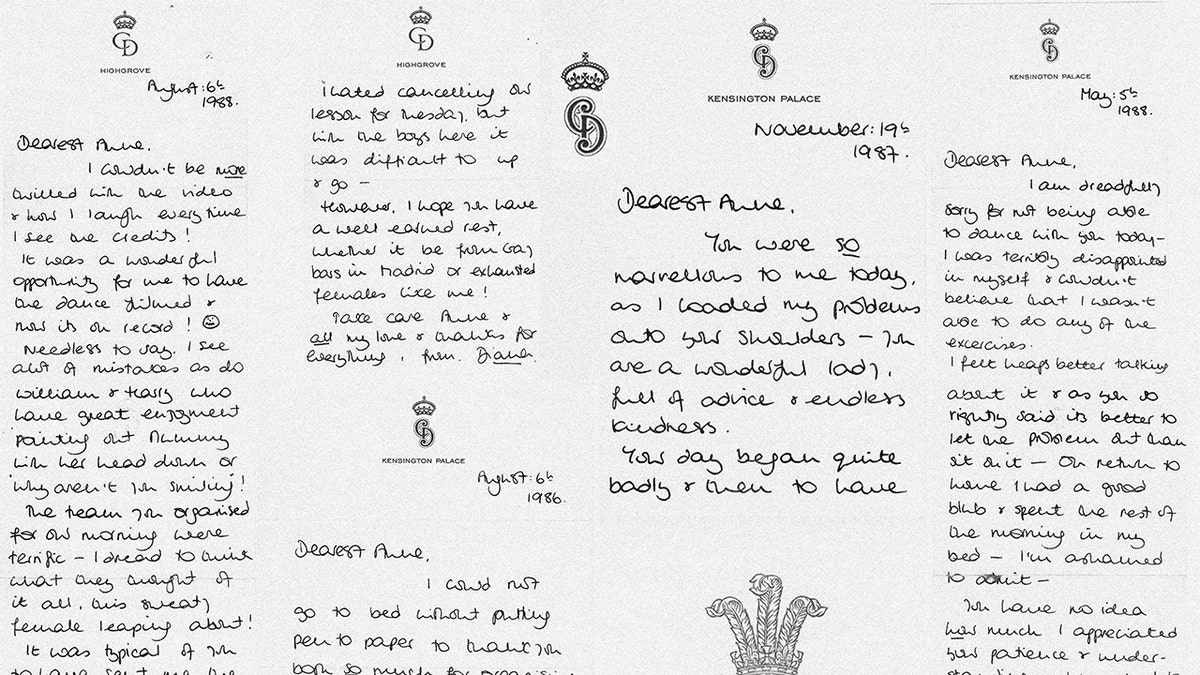 CD
HIGHGROVE
August: 6th
1988.
Dearest Anne,
I couldn't be more
thrilled with the video
& how I laugh every time
I see the credits!
It was a wonderful
opportunity for me to have
the dance filmed &
now its on record!
Needless to say, I see
alot of mistakes as do
William & Harry who
have great enjoyment
pointing out Mummy
with her head down or
'why aren't you smiling'!
The team you organised
for our morning were
terrific – I dread to think
what they thought of
it all, this sweaty
female leaping about!
It was typical of you
to have sent me the
CD
HIGHGROVE
I hated cancelling our
lesson for Tuesday, but
with the boys here it
was difficult to up
& go –
However, I hope you have
a well earned rest,
whether it be from Gay
bars in Madrid or exhausted
females like me!
Take care Anne &
all my love & thanks for
everything, from, Diana.
CD
KENSINGTON PALACE
August: 6th
1986.
Dearest Anne,
I could not
go to bed without putting
pen to paper to thank you
both so much for organising
CD
CD
KENSINGTON PALACE
November: 19th
1987.
Dearest Anne,
You were so
marvellous to me today,
as I loaded my problems
onto your shoulders – you
are a wonderful lady,
full of advice & endless
kindness.
Your day began quite
badly & then to have
CD
KENSINGTON PALACE
May: 5th
1988.
Dearest Anne,
I am dreadfully
sorry for not being able
to dance with you today –
I was terribly disappointed
in myself & couldn't
believe that I wasn't
able to do any of the
exercises.
I felt heaps better talking
about it & as you so
rightly said its better to
let the problem out than
sit on it – On return to
home I had a good
blub & spent the rest of
the morning in my
bed – I'm ashamed
to admit –
You have no idea
how much I appreciated
your patience & under-